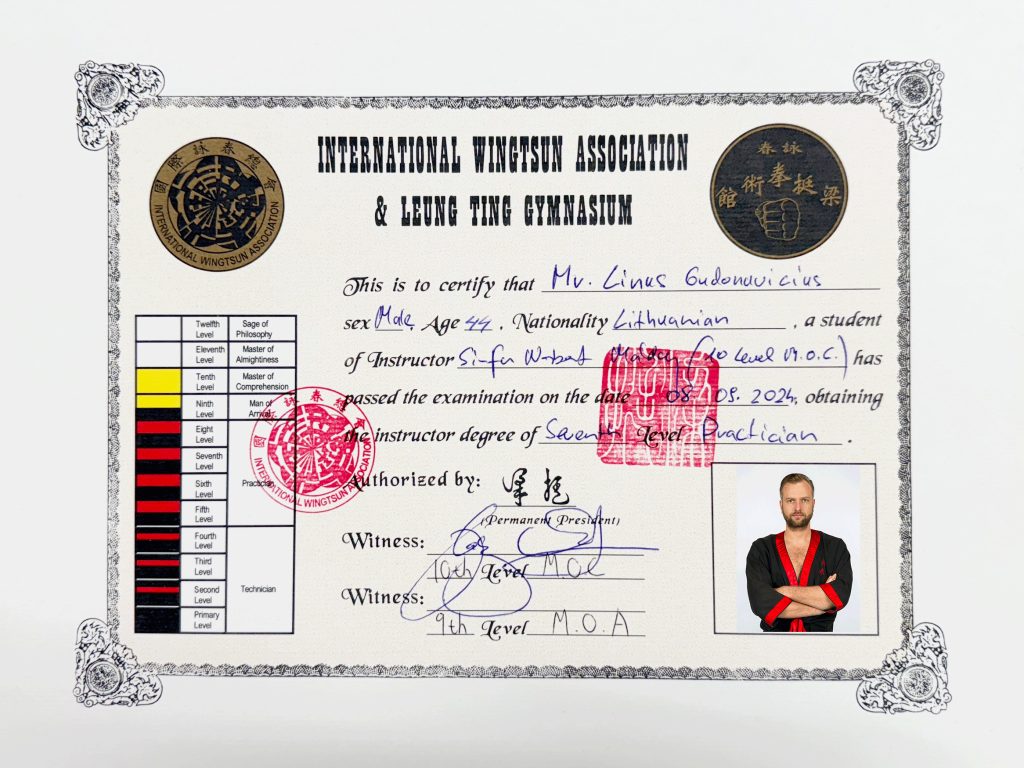 INTERNATIONAL WINGTSUN ASSOCIATION
& LEUNG TING GYMNASIUM
國際詠春總會
INTERNATIONAL WINGTSUN ASSOCIATION
詠春
梁挺拳術館
This is to certify that Mr. Linas Gudonavicius
sex Male, Age 44, Nationality Lithuanian, a student
of Instructor Si-fu Norbert (10 Level M.O.C.) has
passed the examination on the date 08. 09. 2024, obtaining
the instructor degree of Seventh Level Practician.
Authorized by: 梁挺
(Permanent President)
Witness:
10th Level M.O.C
Witness:
9th Level M.O.A
Twelfth Level Sage of Philosophy
Eleventh Level Master of Almightiness
Tenth Level Master of Comprehension
Ninth Level Man of Arrival
Eight Level
Seventh Level
Sixth Level Practician
Fifth Level
Fourth Level
Third Level
Second Level Technician
Primary Level
國際詠春總會
INTERNATIONAL WINGTSUN ASSOCIATION